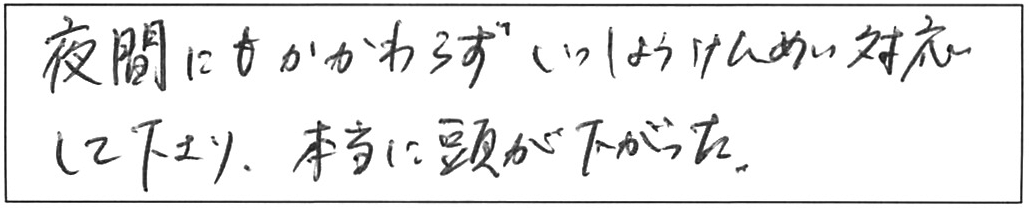 夜間にもかかわらずいっしょうけんめい対応
して下さり、本当に頭が下がった。